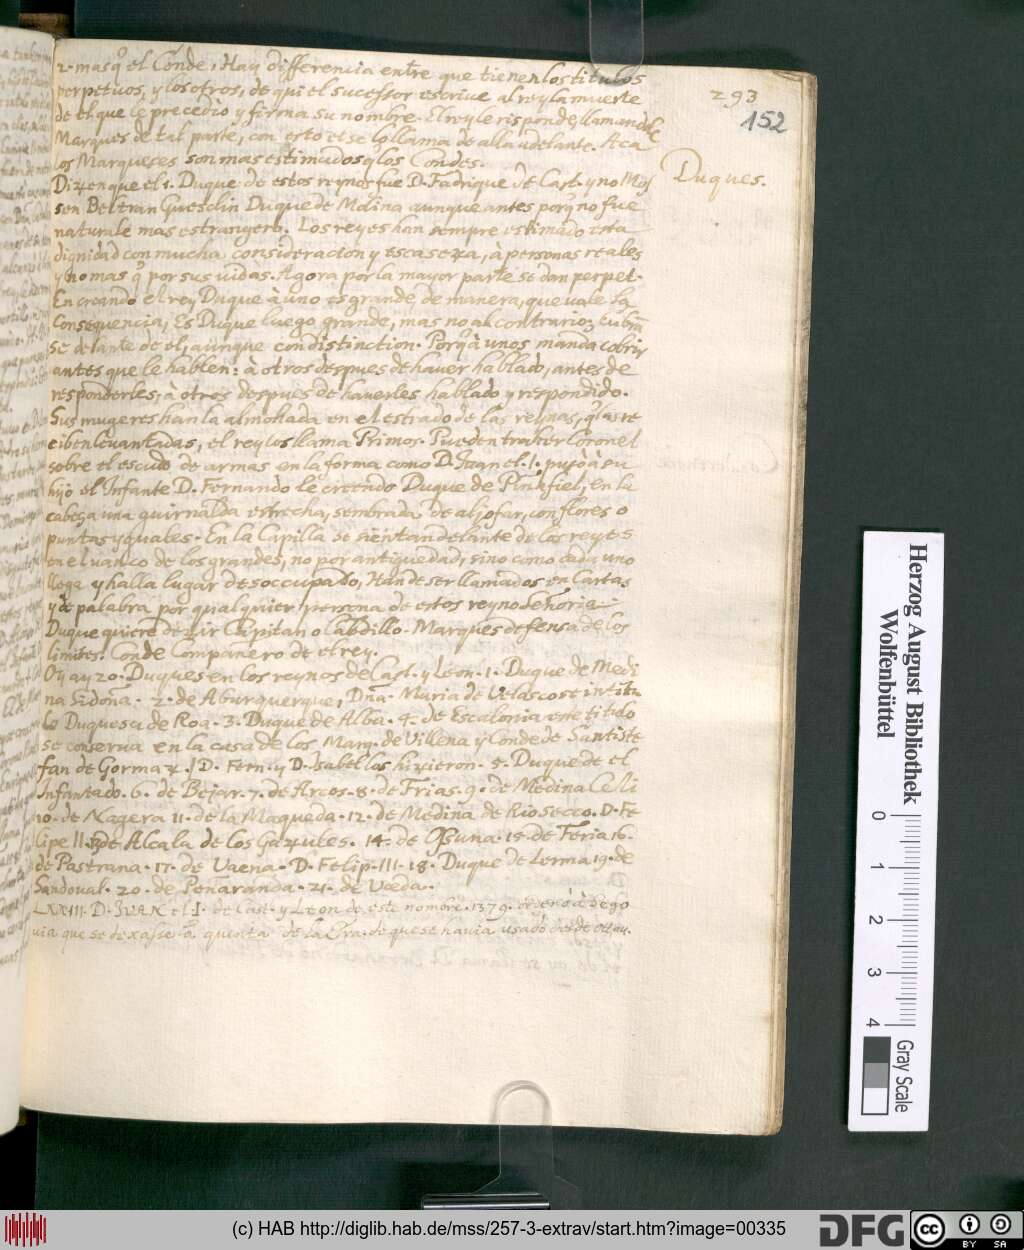 293
152
Duques.
2. mas q̃ el Conde, Hay differencia entre que tienen los titulos
perpetuos, y los otros, de qui el sucessor escrive al rey la muerte
de el que le precedio y firma su nombre. El rey le risponde, llamandole
Marques de tal parte, con esto et se lo llama de alla adelante. Aca
los Marqueses son mas estimados q̃ los Condes.
Dizen que el 1. Duque de estos reynos fue D. Fadrique de Cast. y no Mos
sen Beltran Guesclin Duque de Molina aunque antes porq̃ no fue
naturale mas estrangero. Los reyes han sempre estimado esta
dignidad con mucha consideracion y escaseza, à personas reales
y no mas q̃ por sus vidas. Agora por la mayor parte se dan perpet.
En creando el rey Duque à uno es grande de manera, que vale la
Consequencia, Es Duque luego grande, mas no al contrario, cubrā
se delante de el, aunque con distinction. Porq̃ à unos manda cobrir
antes que le hablen: à otros despues de haver hablado, antes de
responderles, à otros despues de haverles hablado y respondido.
Sus mugeres han la almohada en el estrado de las reynas, q̃ las re
ciben levantadas, el rey los llama Primos. Pueden traher Coronel
sobre el escudo de armas en la forma como D. Juan el .1. pusò à su
hijo el Infante D. Fernando le creendo Duque de Peñafiel, en la
cabeza una guirnalda estrecha, sembrada de aljofar, con flores o
puntas yguales. En la Capilla se sientan delante de los reyes
en el vanco de los grandes, no por antiguedad, sino como cada uno
llega y halla lugar desoccupado, Han de ser llamados en Cartas
y de palabra por qualquier persona de estos reyno Señoria.
Duque quiere dezir Capitan o Cabdillo. Marques defensa de los
limites. Conde Compañero de el rey.
Oy ay 20. Duques en los reynos de Cast. y Leon. 1. Duque de Medi
na Sidoña. 2. de Aburquerque, Dña. Maria de Velasco se intitu
la Duquesa de Roa. 3. Duque de Alba. 4. de Escalonia este titulo
se conserva en la casa de los Marq. de Villena y Conde de Santiste
fan de Gormaz. D. Fern. y D. Isabel los hizieron. 5. Duque de el
Infantado. 6. de Bejar. 7. de Arcos. 8. de Frias. 9. de Medina Celi
10. de Nagera 11. de la Maquada. 12. de Medina de Rio secco. D. Fe
lipe II. 13 de Alcala de los Gazules. 14. de Ossuna. 15. de Feria 16.
de Pastrana. 17. de Vaena. D. Felip. III. 18. Duque de Lerma 19. de
Sandoval. 20. de Peñaranda. 21. de Uzeda.
LXXIII. D. JUAN el I. de Cast. y Leon de este nombre. 1379. ordenò à Sego
via que se dexasse la quenta de la Era. de que se havia usado desde Octav.
Herzog August Bibliothek
Wolfenbüttel
0 1 2 3 4
Gray Scale
(c) HAB http://diglib.hab.de/mss/257-3-extrav/start.htm?image=00335
DFG
cc BY SA